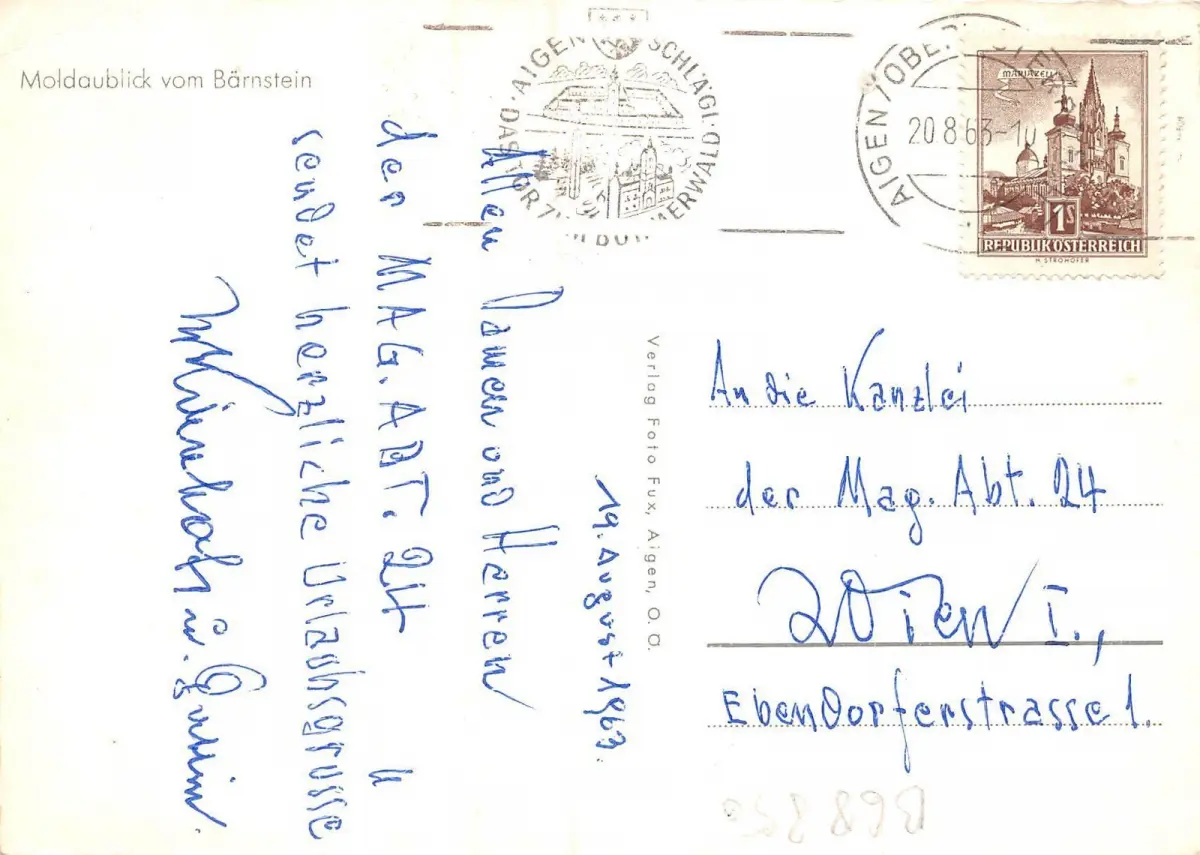 Moldaublick vom Bärnstein
AIGEN SCHLÄGL O
DAS TOR ZUM BÖHMERWALD
AIGEN/OBERÖSTER
20 8 63-10
MARIAZELL
1S
REPUBLIK ÖSTERREICH
H. STROHOFER
19. August 1963.
Allen Damen und Herren
der MAG. ABT. 24
sendet herzliche Urlaubsgrüsse
u. Gattin.
Verlag Foto Fux, Aigen, O. Ö.
An die Kanzlei
der Mag. Abt. 24
Wien I.,
Ebendorferstrasse 1.